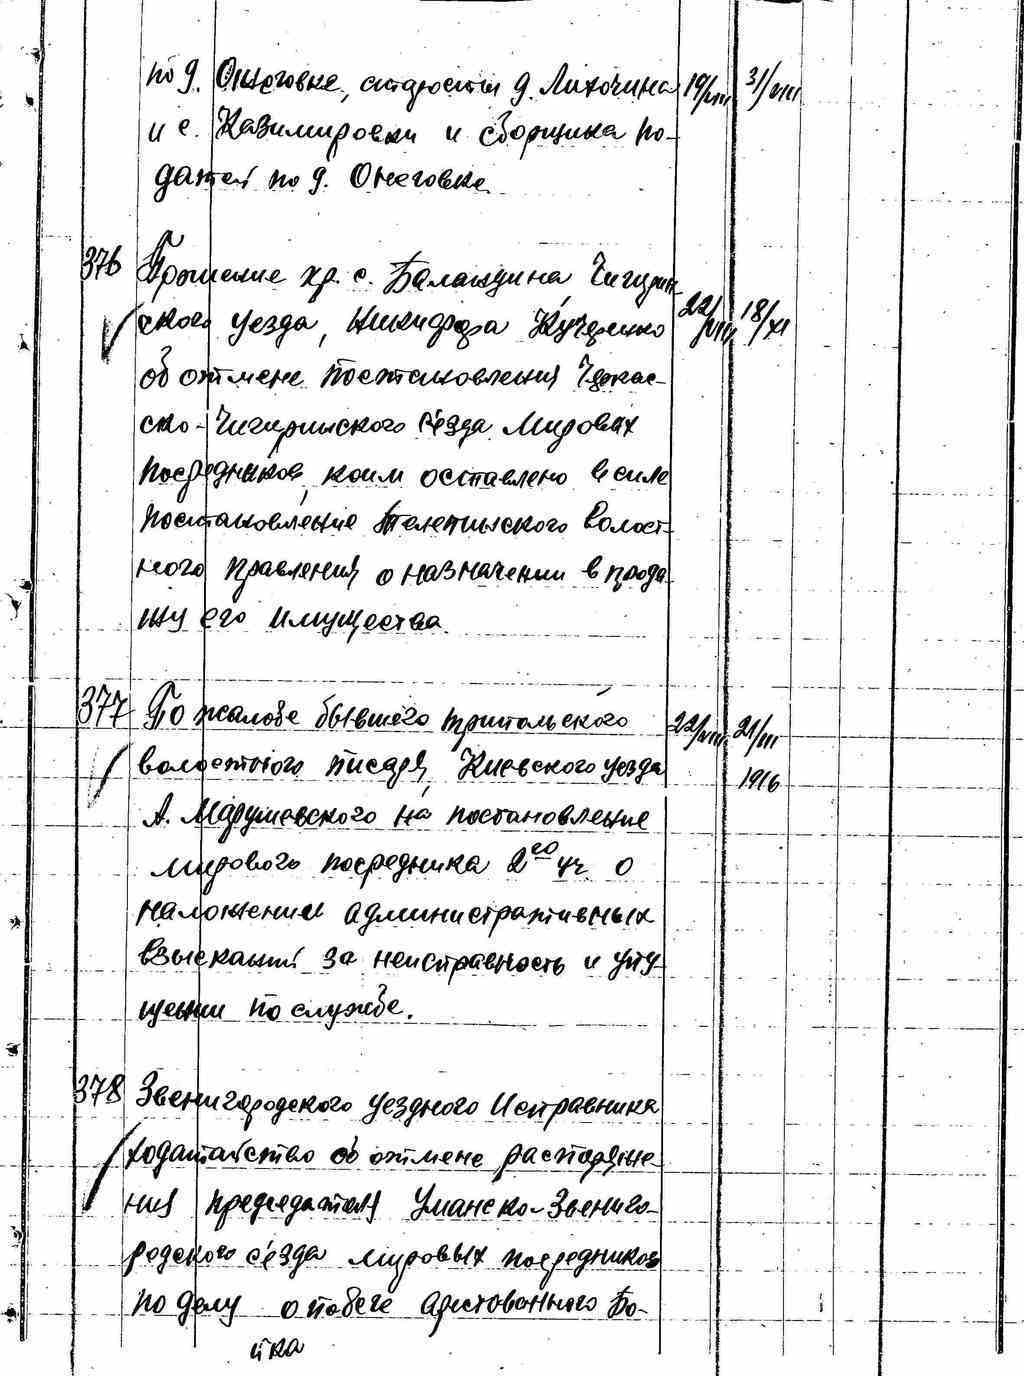 по д. Онеговке, старосты д. Лихочина 19/VIII 31/VIII
и с. Казимировки и сборщика по-
датей по д. Онеговке
376 Прошение кр. с. Баландина, Чигирин-
ского уезда, Никифора Кучеренко 22/VIII 18/XI
об отмене постановления Черкас-
ско-Чигиринского с'езда Мировых
посредников, коим оставлено в силе
постановление Телепинского волост-
ного правления о назначении в прода
жу его имущества
377 По жалобе бывшего трипольского 22/VIII 21/III
волостного писаря, Киевского уезда 1916
А. Марушевского на постановление
мирового посредника 2го уч. о
наложении административных
взысканий за неисправность и упу-
щении по службе.
378 Звенигородского уездного Исправника
ходатайство об отмене распоряже-
ния председателя Уманско-Звениго-
родского с'езда мировых посредников
по делу о побеге арестованного Бо-
йка